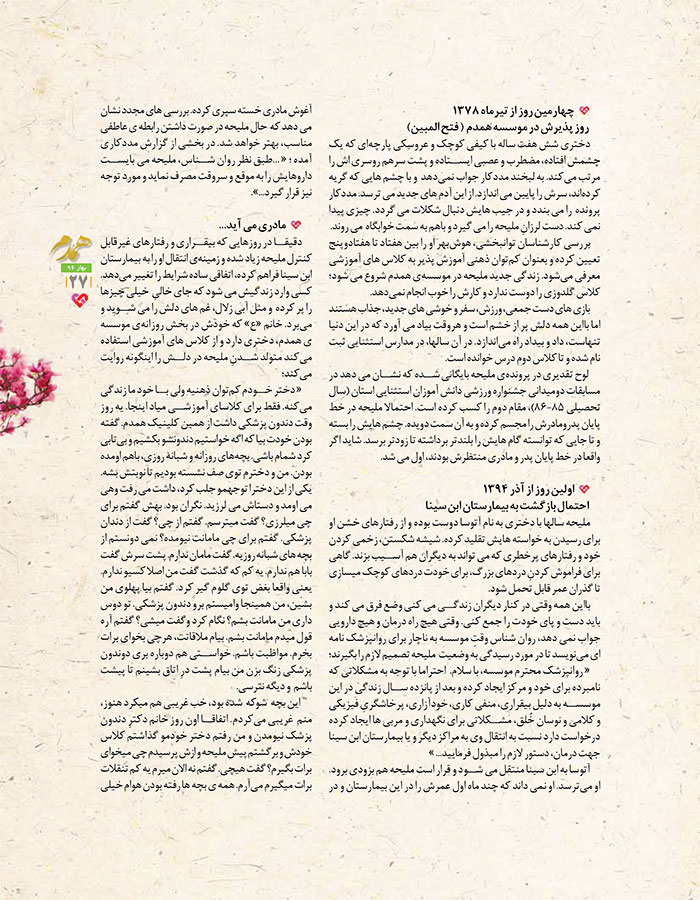 چهارمین روز از تیرماه ۱۳۷۸
روز پذیرش در موسسه همدم (فتح المبین)
دختری شش هفت ساله با کیفی کوچک و عروسکی پارچه‌ای که یک
چشمش افتاده، مضطرب و عصبی ایستاده و پشت سرهم روسری اش را
مرتب می‌کند. به لبخند مددکار جواب نمی‌دهد و با چشم هایی که گریه
کرده‌اند، سرش را پایین می اندازد. از این آدم های جدید می ترسد. مددکار
پرونده را می بندد و در جیب هایش دنبال شکلات می گردد. چیزی پیدا
نمی کند. دست لرزانِ ملیحه را می گیرد و باهم به سَمت خوابگاه می روند.
بررسی کارشناسان توانبخشی، هوش‌بهر او را بین هفتاد تا هفتادو پنج
تعیین کرده و بعنوان کم‌توان ذهنی آموزش پذیر به کلاس های آموزشی
معرفی می‌شود. زندگی جدید ملیحه در موسسه‌ی همدم شروع می شود؛
کلاس گلدوزی را دوست ندارد و کارش را خوب انجام نمی‌دهد.
بازی های دست جمعی، ورزش، سفر و خوشی های جدید، جذاب هستند
اما بااین همه دلش پر از خشم است و هروقت بیاد می آورد که در این دنیا
تنهاست، داد و بیداد راه می‌اندازد. در آن سالها، در مدارس استثنایی ثبت
نام شده و تا کلاس دوم درس خوانده است.
لوح تقدیری در پرونده‌ی ملیحه بایگانی شده که نشان می دهد در
مسابقات دومیدانی جشنواره ورزشی دانش آموزان استثنایی استان (سال
تحصیلی ۸۵-۸۶)، مقام دوم را کسب کرده است. احتمالا ملیحه در خط
پایان پدرومادرش را مجسم کرده و به آن سمت دویده. چشم هایش را بسته
و تا جایی که توانسته گام هایش را بلندتر برداشته تا زودتر برسد. شاید اگر
واقعا در خط پایان پدر و مادری منتظرش بودند، اول می شد.
اولین روز از آذر ۱۳۹۴
احتمال بازگشت به بیمارستان ابن سینا
ملیحه سالها با دختری به نام آتوسا دوست بوده و از رفتارهای خشن او
برای رسیدن به خواسته هایش تقلید کرده. شیشه شکستن، زخمی کردن
خود و رفتارهای پرخطری که می تواند به دیگران هم آسیب بزند. گاهی
برای فراموش کردنِ دردهای بزرگ، برای خودت دردهای کوچک میسازی
تا گذران عمر قابل تحمل شود.
بااین همه وقتی در کنار دیگران زندگی می کنی وضع فرق می کند و
باید دست و پای خودت را جمع کنی. وقتی هیچ راه درمان و هیچ دارویی
جواب نمی دهد، روان شناس وقتِ موسسه به ناچار برای روانپزشک نامه
ای می‌نویسد تا در مورد رسیدگی به وضعیت ملیحه تصمیم لازم را بگیرند؛
«روانپزشک محترم موسسه، با سلام. احتراما با توجه به مشکلاتی که
نامبرده برای خود و مرکز ایجاد کرده و بعد از پانزده سال زندگی در این
موسسه به دلیل بیقراری، منفی کاری، خودآزاری، پرخاشگریِ فیزیکی
و کلامی و نوسان خُلق، مشکلاتی برای نگهداری و مربی ها ایجاد کرده
درخواست دارد نسبت به انتقال وی به مراکز دیگر و یا بیمارستان ابن سینا
جهت درمان، دستور لازم را مبذول فرمایید...»
آتوسا به ابن سینا منتقل می شود و قرار است ملیحه هم بزودی برود.
او می‌ترسد. او نمی داند که چند ماه اول عمرش را در این بیمارستان و در
آغوش مادری خسته سپری کرده. بررسی های مجدد نشان
می دهد که حال ملیحه در صورت داشتن رابطه ی عاطفی
مناسب، بهتر خواهد شد. در بخشی از گزارش مددکاری
آمده ؛ «...طبق نظر روان شناس، ملیحه می بایست
داروهایش را به موقع و سروقت مصرف نماید و مورد توجه
نیز قرار گیرد...».
مادری می آید...
دقیقا در روزهایی که بیقراری و رفتارهای غیرقابل
کنترل ملیحه زیاد شده و زمینه‌ی انتقال او را به بیمارستان
ابن سینا فراهم کرده، اتفاقی ساده شرایط را تغییر می‌دهد.
کسی وارد زندگیش می شود که جای خالیِ خیلی چیزها
را پر کرده و مثل آبی زلال، غم های دلش را می شوید و
می‌برد. خانم «ع» که خودش در بخش روزانه‌ی موسسه
ی همدم، دختری دارد و از کلاس های آموزشی استفاده
می‌کند متولد شدنِ ملیحه در دلش را اینگونه روایت
می کند؛
«دختر خودم کم‌توان ذهنیه ولی با خود ما زندگی
می کنه. فقط برای کلاسای آموزشی میاد اینجا. یه روز
وقت دندون پزشکی داشت از همین کلینیک همدم. گفته
بودن خودت بیا که اگه خواستیم دندونشو بکشیم و بی‌تابی
کرد شمام باشی. بچه‌های روزانه و شبانهٔ روزی، باهم اومده
بودن. من و دخترم توی صف نشسته بودیم تا نوبتش بشه.
یکی از این دخترا توجهمو جلب کرد، داشت می رفت وهی
می اومد و دستاش می لرزید. نگران بود. بهش گفتم برای
چی میلرزی؟ گفت میترسم. گفتم از چی؟ گفت از دندان
پزشکی. گفتم برای چی مامانت نیومده؟ نمی دونستم از
بچه های شبانه روزیه. گفت مامان ندارم. پشت سرش گفت
بابا هم ندارم. یه کم که گذشت گفت من اصلا کسیو ندارم.
یعنی واقعا بغض توی گلوم گیر کرد. گفتم بیا پهلوی من
بشین، من همینجا وامیستم برو دندون پزشکی. تو دوس
داری من مامانت بشم؟ نگام کرد و گفت میشی؟ گفتم آره
قول میدم مامانت بشم. بیام ملاقاتت، هرچی بخوای برات
بخرم. مواظبت باشم. خواستی هم دوباره بری دوندون
پزشکی زنگ بزن من بیام پشت در اتاق بشینم تا پیشت
باشم و دیگه نترسی.
این بچه شوکه شده بود، خب غریبی هم میکرد هنوز،
منم غریبی می‌کردم. اتفاقا اون روز خانم دکتر دندون
پزشک نیومدن و من رفتم دختر خودمو گذاشتم کلاس
خودش و برگشتم پیش ملیحه و ازش پرسیدم چی میخوای
برات بگیرم؟ گفت هیچی. گفتم نه الان میرم یه کم تنقلات
برات میگیرم می‌آرم. همه ی بچه ها رفته بودن هوام خیلی
همدم
بهار ۹۶
۲۷